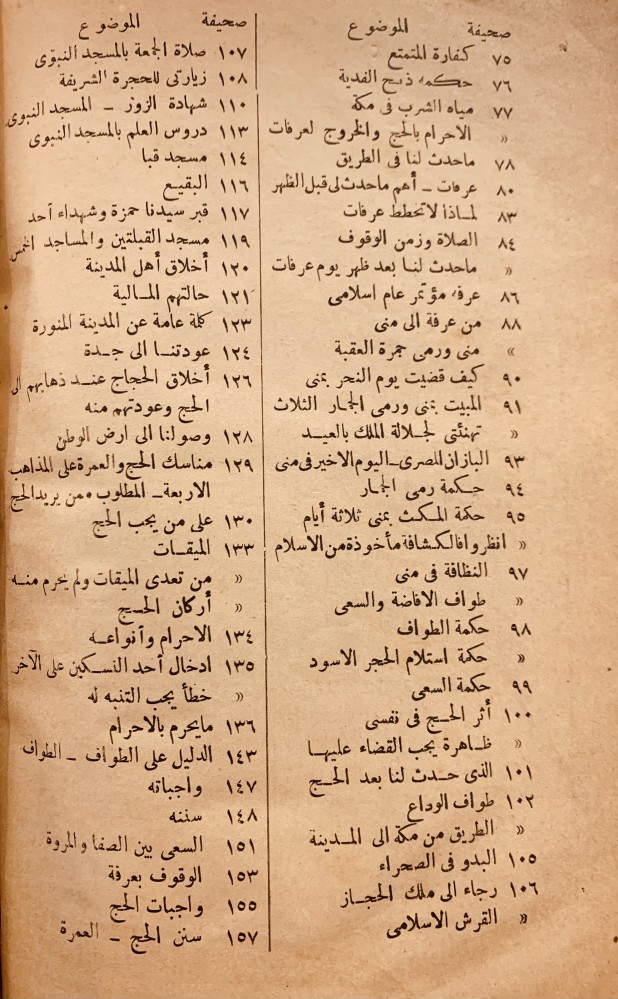 صحيفة الموضوع
٧٥ كفارة المتمتع
٧٦ حكمة ذبح الفدية
٧٧ مياه الشرب فى مكة
« الاحرام بالحج والخروج لعرفات
٧٨ ماحدث لنا فى الطريق
٨٠ عرفات ــ أهم ماحدث لى قبل الظهر
٨٣ لماذا لاتخطط عرفات
٨٤ الصلاة وزمن الوقوف
« ماحدث لنا بعد ظهر يوم عرفات
٨٦ عرفة مؤتمر عام اسلامى
٨٨ من عرفة الى منى
« منى ورمى جمرة العقبة
٩٠ كيف قضيت يوم النحر بمنى
٩١ المبيت بمنى ورمى الجمار الثلاث
« تهنئتى لجلالة الملك بالعيد
٩٣ البازان المصرى ــ اليوم الاخير فى منى
٩٤ حكمة رمى الجمار
٩٥ حكمة المكث بمنى ثلاثة أيام
« انظروا فالكشافة مأخوذة من الاسلام
٩٧ النظافة فى منى
« طواف الافاضة والسعى
٩٨ حكمة الطواف
« حكمة استلام الحجر الاسود
٩٩ حكمة السعى
١٠٠ أثر الحج فى نفسى
« ظاهرة يجب القضاء عليها
١٠١ الذى حدث لنا بعد الحج
١٠٢ طواف الوداع
« الطريق من مكة الى المدينة
١٠٥ البدو فى الصحراء
١٠٦ رجاء الى ملك الحجاز
« القرش الاسلامى
صحيفة الموضوع
١٠٧ صلاة الجمعة بالمسجد النبوى
١٠٨ زيارتى للحجرة الشريفة
١١٠ شهادة الزور ــ المسجد النبوى
١١٣ دروس العلم بالمسجد النبوى
١١٤ مسجد قبا
١١٦ البقيع
١١٧ قبر سيدنا حمزة وشهداء أحد
١١٩ مسجد القبلتين والمساجد الخمس
١٢٠ أخلاق أهل المدينة
١٢١ حالتهم المالية
١٢٣ كلمة عامة عن المدينة المنورة
١٢٤ عودتنا الى جدة
١٢٦ أخلاق الحجاج عند ذهابهم الى
الحج وعودتهم منه
١٢٨ وصولنا الى ارض الوطن
١٢٩ مناسك الحج والعمرة على المذاهب
الاربعة ــ المطلوب ممن يريد الحج
١٣٠ على من يجب الحج
١٣٣ الميقات
« من تعدى الميقات ولم يحرم منه
« أركان الحج
١٣٤ الاحرام وأنواعه
١٣٥ ادخال أحد النسكين على الآخر
« خطأ يجب التنبه له
١٣٦ مايحرم بالاحرام
١٤٣ الدليل على الطواف ــ الطواف
١٤٧ واجباته
١٤٨ سننه
١٥١ السعى بين الصفا والمروة
١٥٣ الوقوف بعرفة
١٥٥ واجبات الحج
١٥٧ سنن الحج ــ العمرة